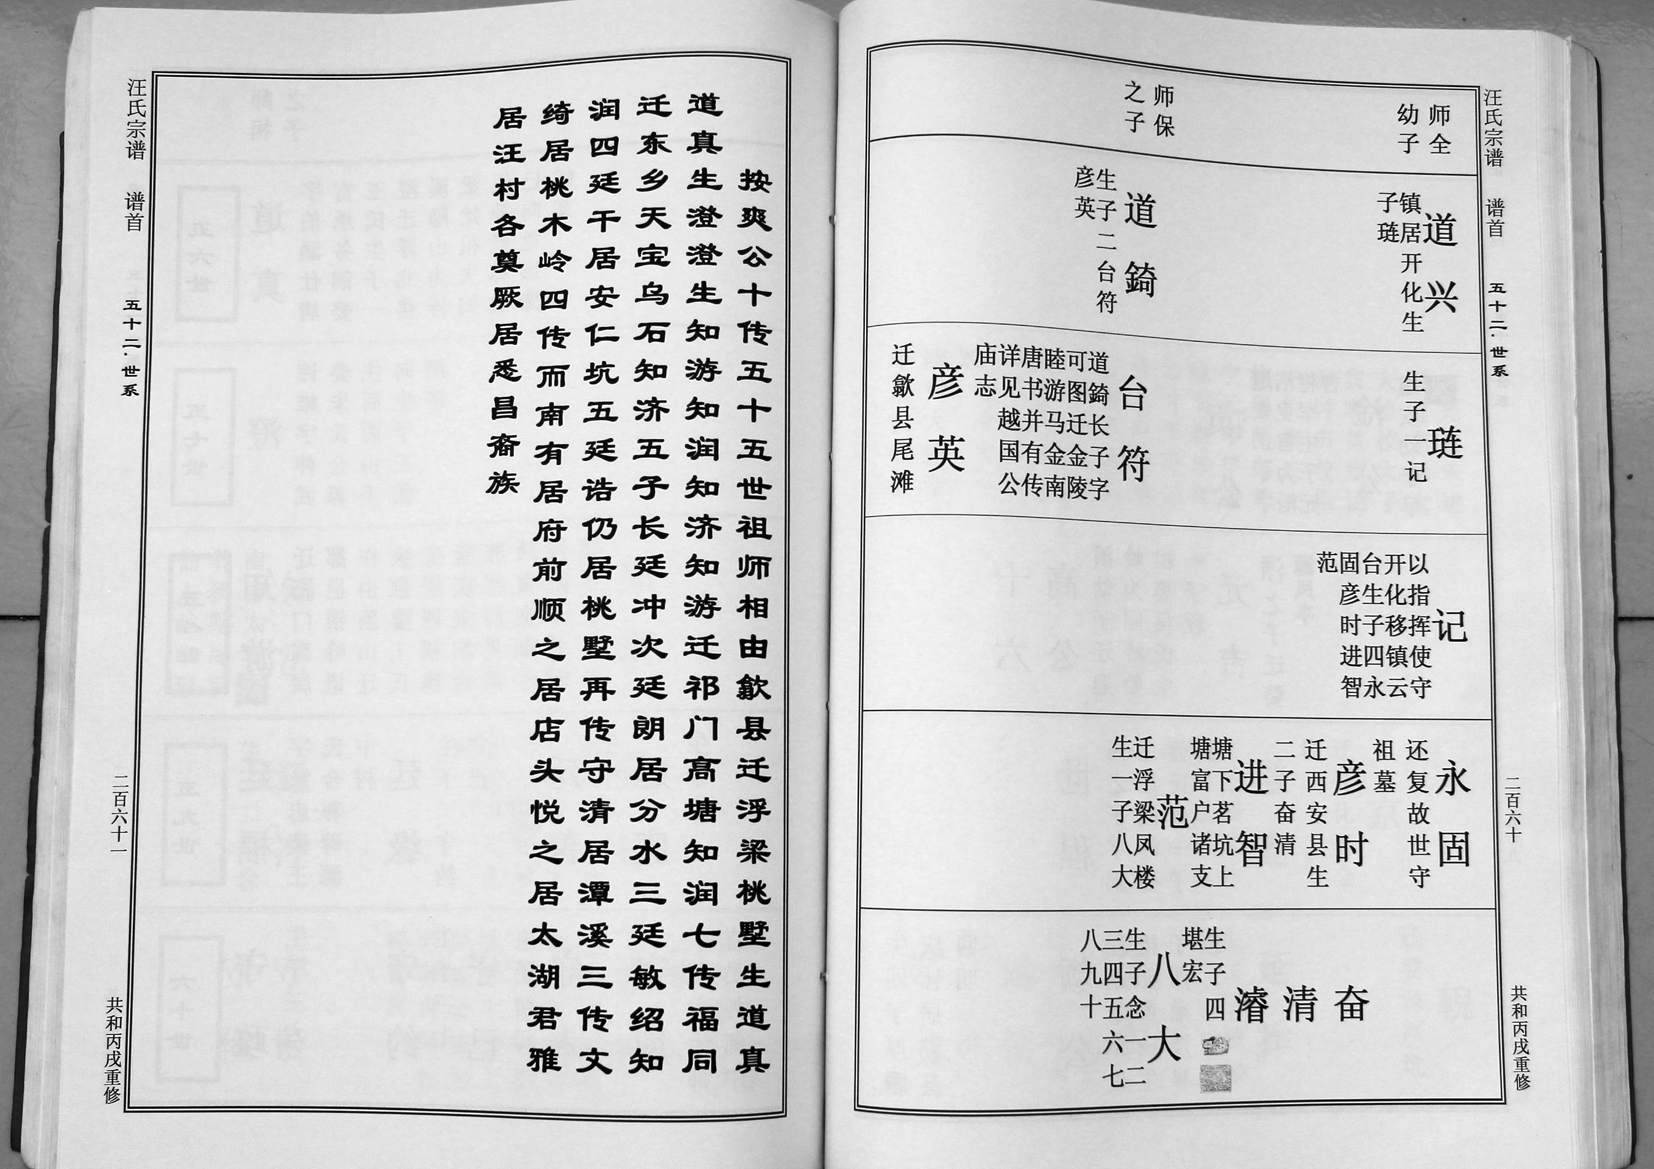 汪氏宗谱 谱首 五十二·世系 二百六十 共和丙戌重修
师全
幼子
师保
之子
道兴
镇居开化生
子琏
道錡
生子二台符
彦英
琏
生子一记
台符
道錡长子字
可图迁金陵
睦游马金南
唐书并有传
详见越国公
庙志
彦英
迁歙县尾滩
记
以指挥使守
开化移镇云
台生子四永
固彦时进智
范
永固
还复故世守
祖墓
彦时
迁西安县生
二子奋清
进智
塘下茗坑上
塘富户诸支
范
迁浮梁凤楼
生一子八大
奋
清
濬
生子四
堪宏
八大
生子念一二
三四五六七
八九十
按爽公十传五十五世祖师相由歙县迁浮梁桃墅生道真
道真生澄澄生知游知润知济知游迁祁门高塘知润七传福同
迁东乡天宝乌石知济五子长廷冲次廷朗居分水三廷敏绍知
润四廷干居安仁坑五廷诰仍居桃墅再传守清居潭溪三传文
绮居桃木岭四传而南有居府前顺之居店头悦之居太湖君雅
居汪村各奠厥居悉昌裔族
汪氏宗谱 谱首 五十二·世系 二百六十一 共和丙戌重修